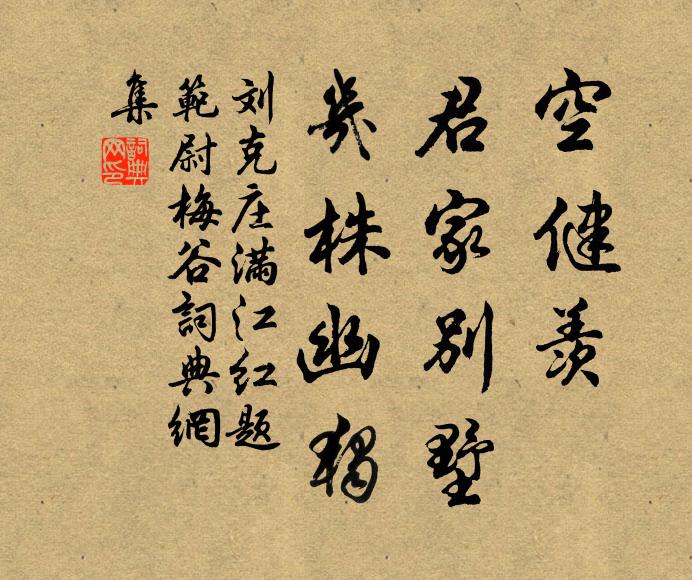 空健羡
君家别墅
几株幽独
刘克庄满江红题
範尉梅谷詞典網
集
詞典網印